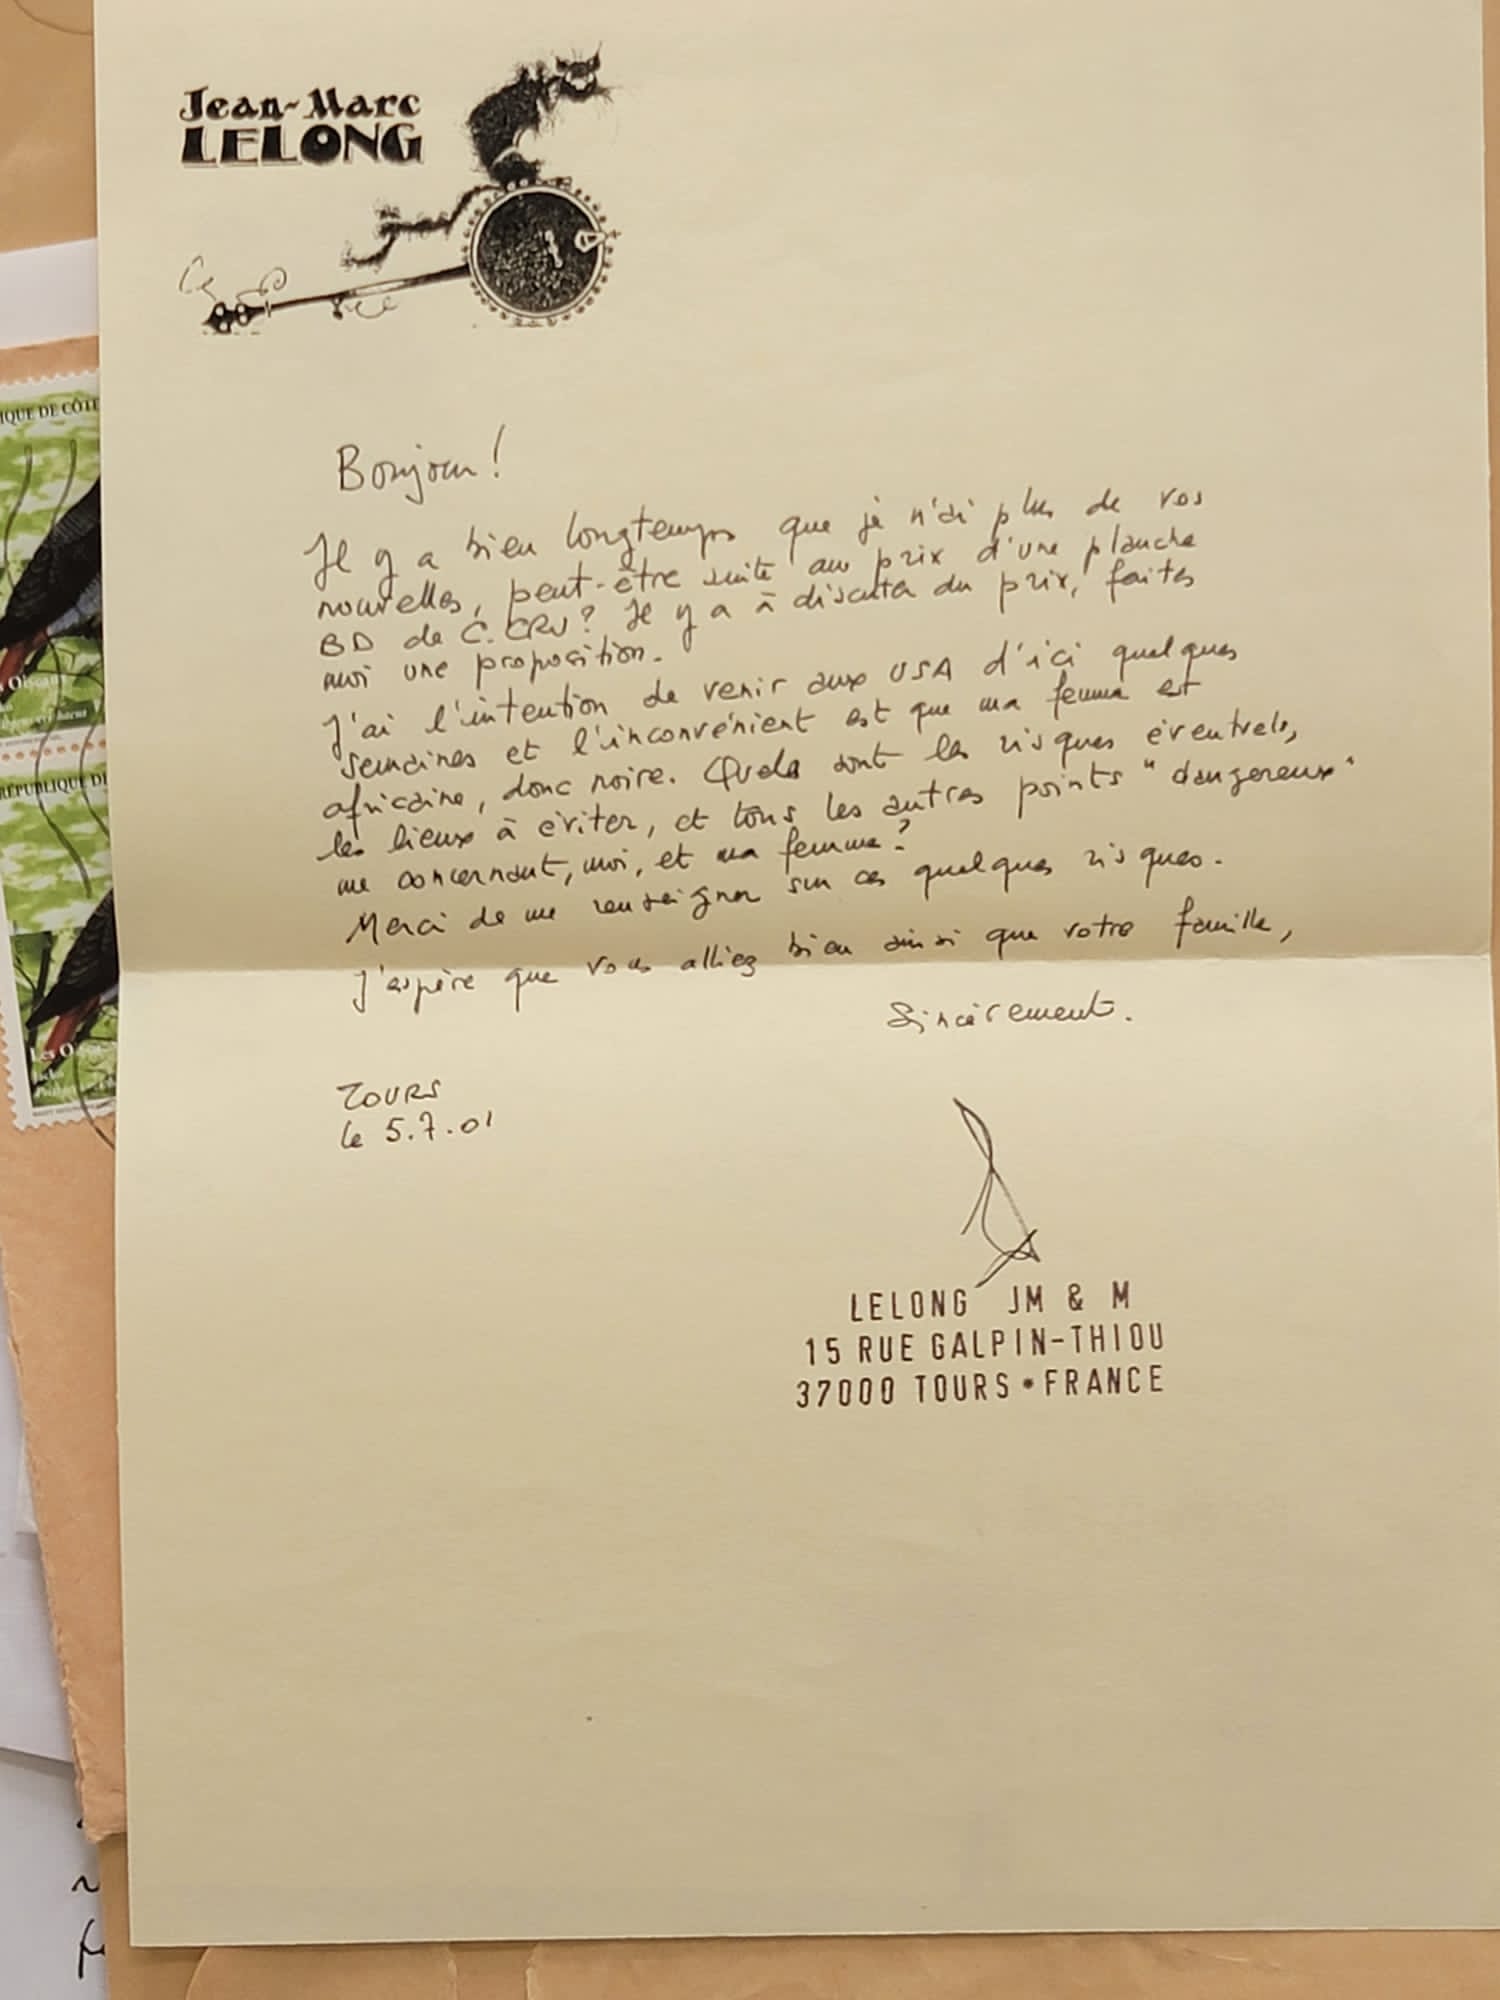 Jean-Marc
LELONG
Bonjour!
Il y a bien longtemps que je n'ai plus de vos
nouvelles, peut-être suite au prix d'une planche
BD de C. CRU? Il y a à discuter du prix, faites
moi une proposition.
J'ai l'intention de venir aux USA d'ici quelques
semaines et l'inconvénient est que ma femme est
africaine, donc noire. Quels sont les risques éventuels,
les lieux à éviter, et tous les autres points "dangereux"
me concernant, moi, et ma femme?
Merci de me renseigner sur ces quelques risques.
J'espère que vous alliez bien ainsi que votre famille,
Sincèrement.
TOURS
le 5.7.01
LELONG JM & M
15 RUE GALPIN-THIOU
37000 TOURS • FRANCE
IQUE DE CÔTE
RÉPUBLIQUE DE